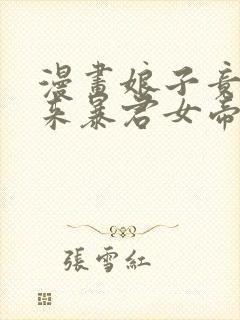 漫畫娘子竟
來暴君女帝
張雪紅